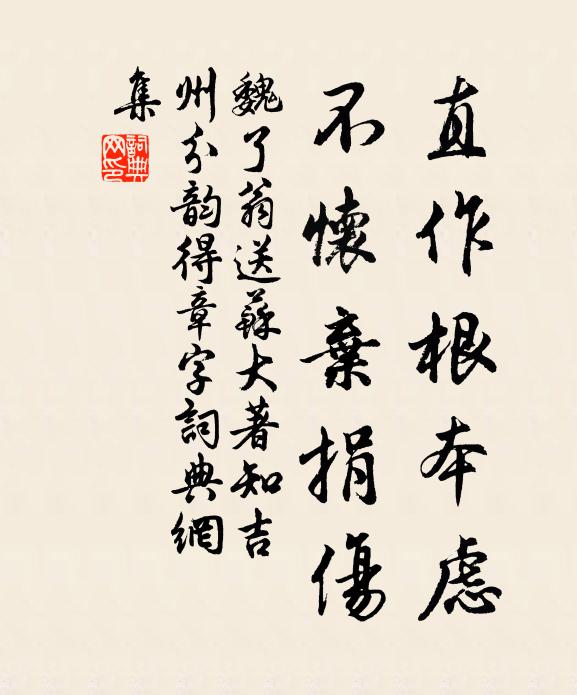 直作根本慮
不懷棄捐傷
魏了翁送蘇大著知吉
州分韵得章字詞典網
集
詞典網印